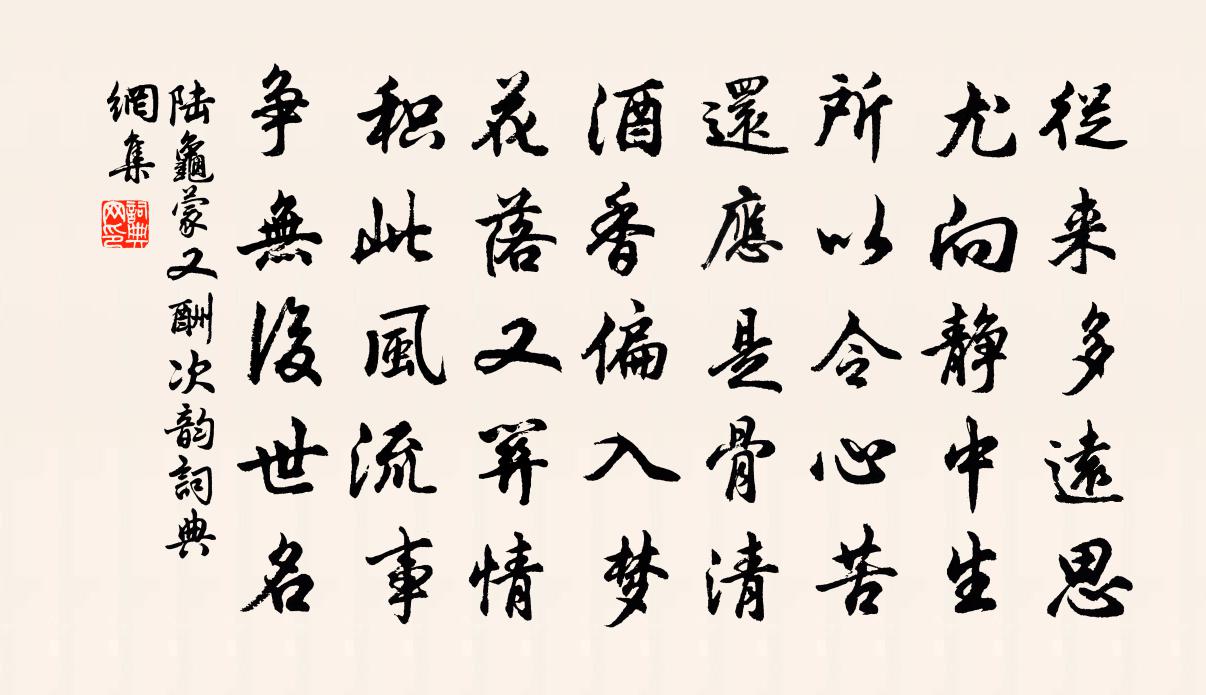 從来多遠思
尤向静中生
所以令心苦
還應是骨清
酒香偏入梦
花落又關情
积此風流事
争無後世名
陆龜蒙又酬次韵詞典
網集
詞典
网印